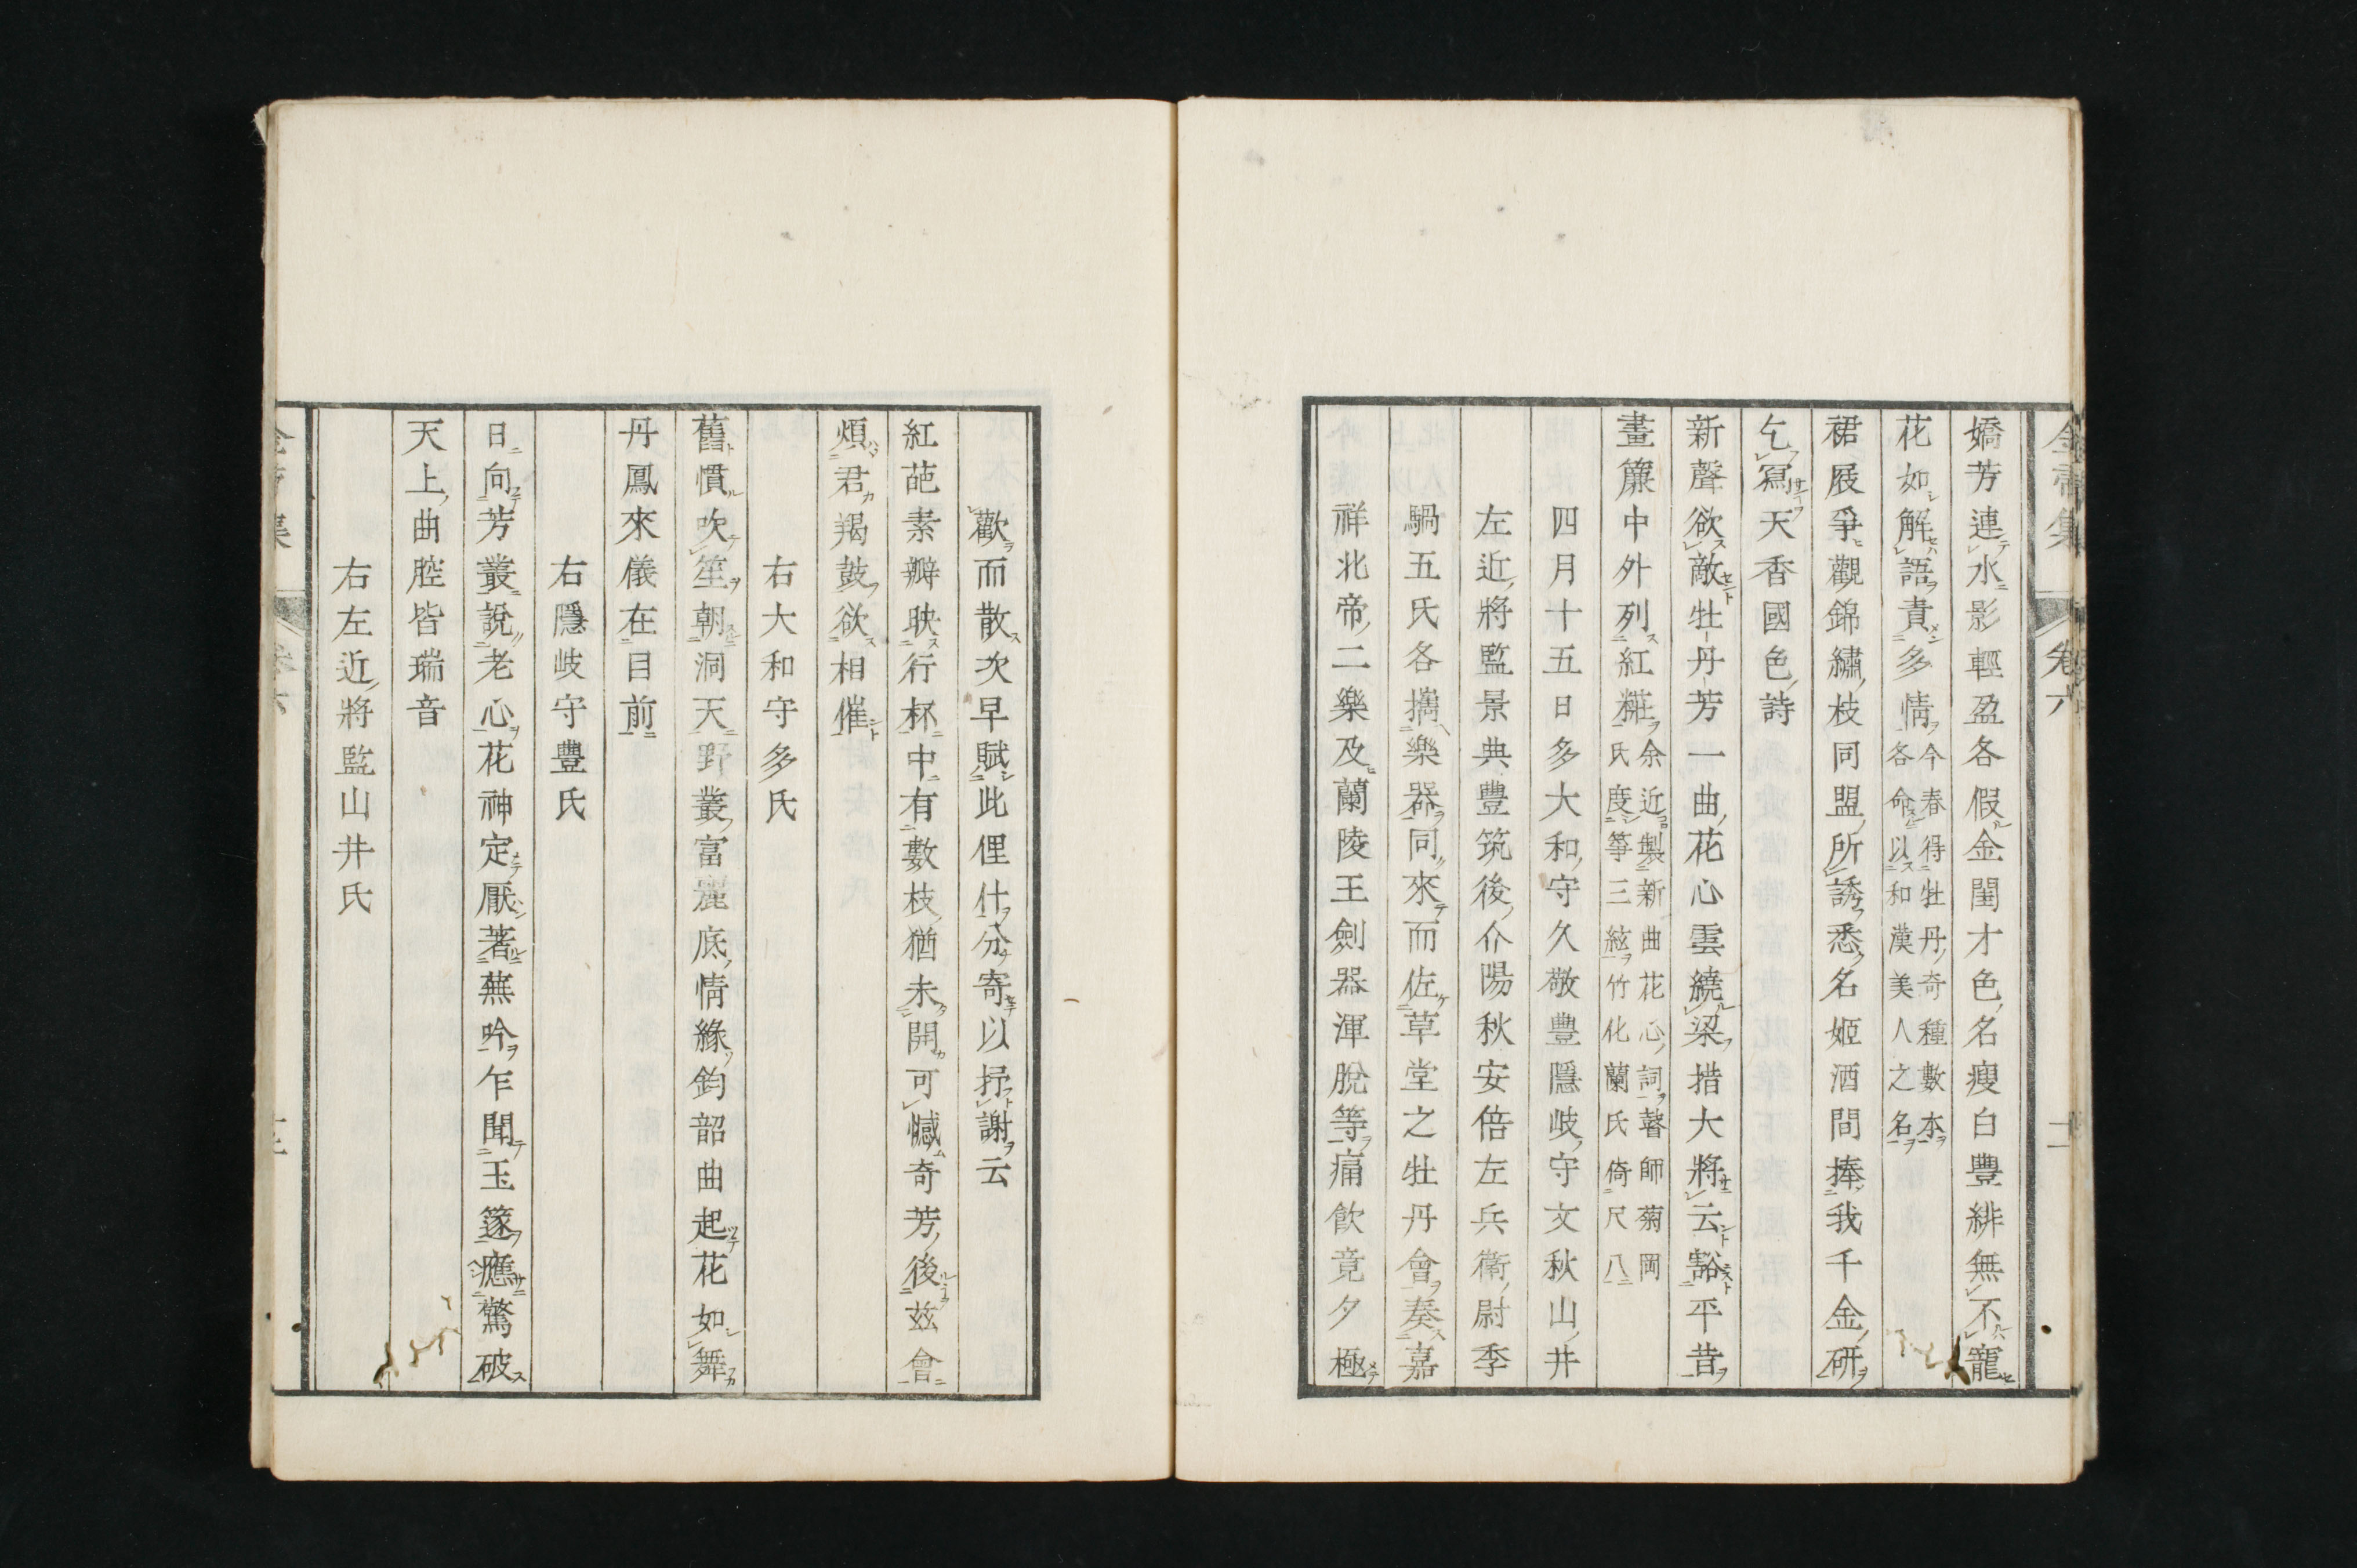 嬌芳連水影輕盈各假金閨才色名瘦白豐緋無不寵
花如解語責多情今春得牡丹奇種數本各命以和漢美人之名
裙屐爭觀錦繡枝同盟所誘悉名姬酒間捧我千金研
乞寫天香國色詩
新聲欲敵牡丹芳一曲花心雲繞梁措大將云豁平昔
畫簾中外列紅糚余近製新曲花心詞瞽師菊岡氏度箏三絃竹化蘭氏倚尺八
四月十五日多大和守久敬豐隱岐守文秋山井
左近將監景典豐筑後介陽秋安倍左兵衛尉季
騧五氏各攜樂器同來而佐草堂之牡丹會奏嘉
祥北帝二樂及蘭陵王劍器渾脫等痛飮竟夕極
歡而散次早賦此俚什分寄以抒謝云
紅葩素瓣映行杯中有數枝猶未開可憾奇芳後玆會
煩君羯鼓欲相催
右大和守多氏
舊慣吹笙朝洞天野叢富麗底情緣鈞韶曲起花如舞
丹鳳來儀在目前
右隱岐守豐氏
日向芳叢說老心花神定厭著蕪吟乍聞玉篴應驚破
天上曲腔皆瑞音
右左近將監山井氏
卷六